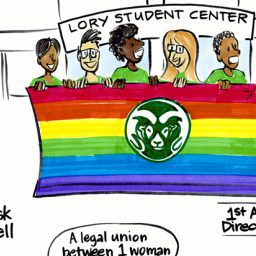 LORY STUDENT CENTER
sk
ell
1st A
Direc
A legal union
between 1 woman